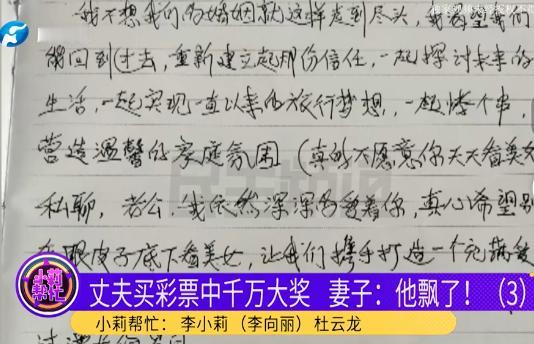 我不想我们的婚姻就这样走到尽头，我希望我们
能回到过去，重新建立起那份信任，一起探讨未来的
生活，一起实现一直以来的旅行梦想，一起怀个串，
营造温馨的家庭氛围（真的不愿意你天天看美女
私聊，老公，我依然深深的爱着你，真心希望别
在眼皮子底下看美女，让我们携手打造一个充满爱
小莉帮忙
丈夫买彩票中千万大奖 妻子：他飘了！（3）
小莉帮忙：李小莉（李向丽）杜云龙